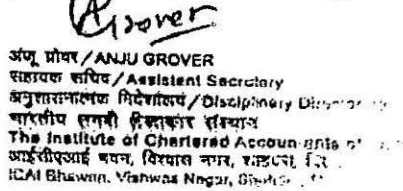 Grover
अंजू ग्रोवर/ANJU GROVER
सहायक सचिव/Assistant Secretary
अनुशासनात्मक निदेशालय/Disciplinary
भारतीय सनदी लेखाकार संस्थान
The Institute of Chartered Accountants of
आईसीएआई भवन, विश्वास नगर, शाहदरा,
ICAI Bhawan, Vishwas Nagar,